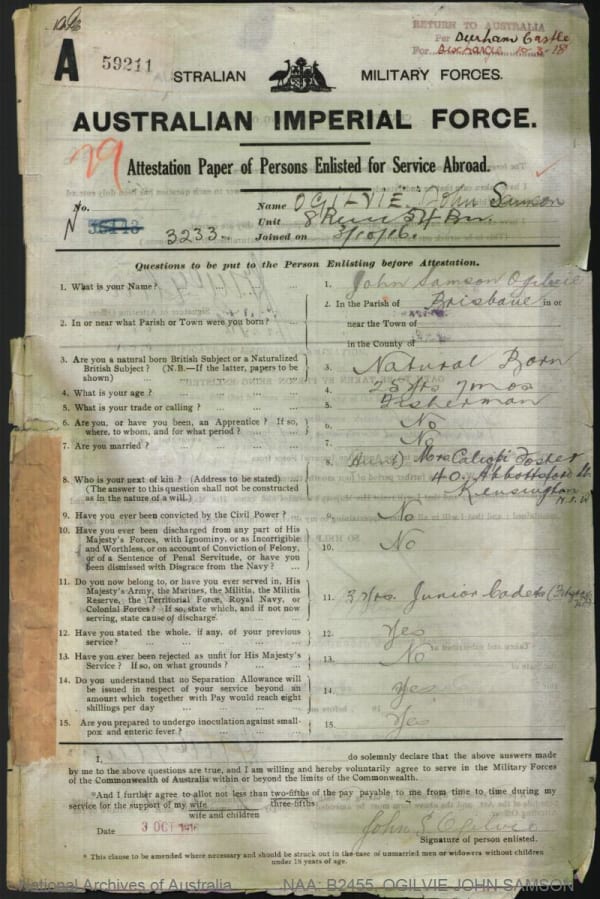 RETURN TO AUSTRALIA
Per Durham Castle
For Discharge 15-3-18
A 59211
STRALIAN MILITARY FORCES.
AUSTRALIAN IMPERIAL FORCE.
29
Attestation Paper of Persons Enlisted for Service Abroad.
No. Name OGILVIE. John Samson
N Unit
3233. Joined on 3/10/16.
Questions to be put to the Person Enlisting before Attestation.
1. What is your Name? ... 1. John Samson Ogilvie
2. In or near what Parish or Town were you born? ... 2. In the Parish of Brisbane in or
near the Town of
in the County of
3. Are you a natural born British Subject or a Naturalized
British Subject? (N.B.—If the latter, papers to be
shown) ... 3. Natural Born
4. What is your age? ... 4. 25 yrs 7 mos
5. What is your trade or calling? ... 5. Fisherman
6. Are you, or have you been, an Apprentice? If so,
where, to whom, and for what period? ... 6. No
7. Are you married? ... 7. No
8. Who is your next of kin? (Address to be stated)
(The answer to this question shall not be construed
as in the nature of a will.) 8. (Aunt) Mrs Foster
40. Abbottsford
Kensington
N.S.W
9. Have you ever been convicted by the Civil Power? 9. No
10. Have you ever been discharged from any part of His
Majesty's Forces, with Ignominy, or as Incorrigible
and Worthless, or on account of Conviction of Felony,
or of a Sentence of Penal Servitude, or have you
been dismissed with Disgrace from the Navy? ... 10. No
11. Do you now belong to, or have you ever served in, His
Majesty's Army, the Marines, the Militia, the Militia
Reserve, the Territorial Force, Royal Navy, or
Colonial Forces? If so, state which, and if not now
serving, state cause of discharge 11. 3 yrs. Junior Cadets
12. Have you stated the whole, if any, of your previous
service? ... 12. Yes
13. Have you ever been rejected as unfit for His Majesty's
Service? If so, on what grounds? ... 13. No
14. Do you understand that no Separation Allowance will
be issued in respect of your service beyond an
amount which together with Pay would reach eight
shillings per day ... 14. Yes
15. Are you prepared to undergo inoculation against small-
pox and enteric fever? ... 15. Yes
I, do solemnly declare that the above answers made
by me to the above questions are true, and I am willing and hereby voluntarily agree to serve in the Military Forces
of the Commonwealth of Australia within or beyond the limits of the Commonwealth.
*And I further agree to allot not less than two-fifths of the pay payable to me from time to time during my
three-fifths
service for the support of my wife
wife and children
Date 3 OCT 1916 John S Ogilvie
Signature of person enlisted.
* This clause to be amended where necessary and should be struck out in the case of unmarried men or widowers without children
under 18 years of age.
National Archives of Australia NAA: B2455, OGILVIE JOHN SAMSON